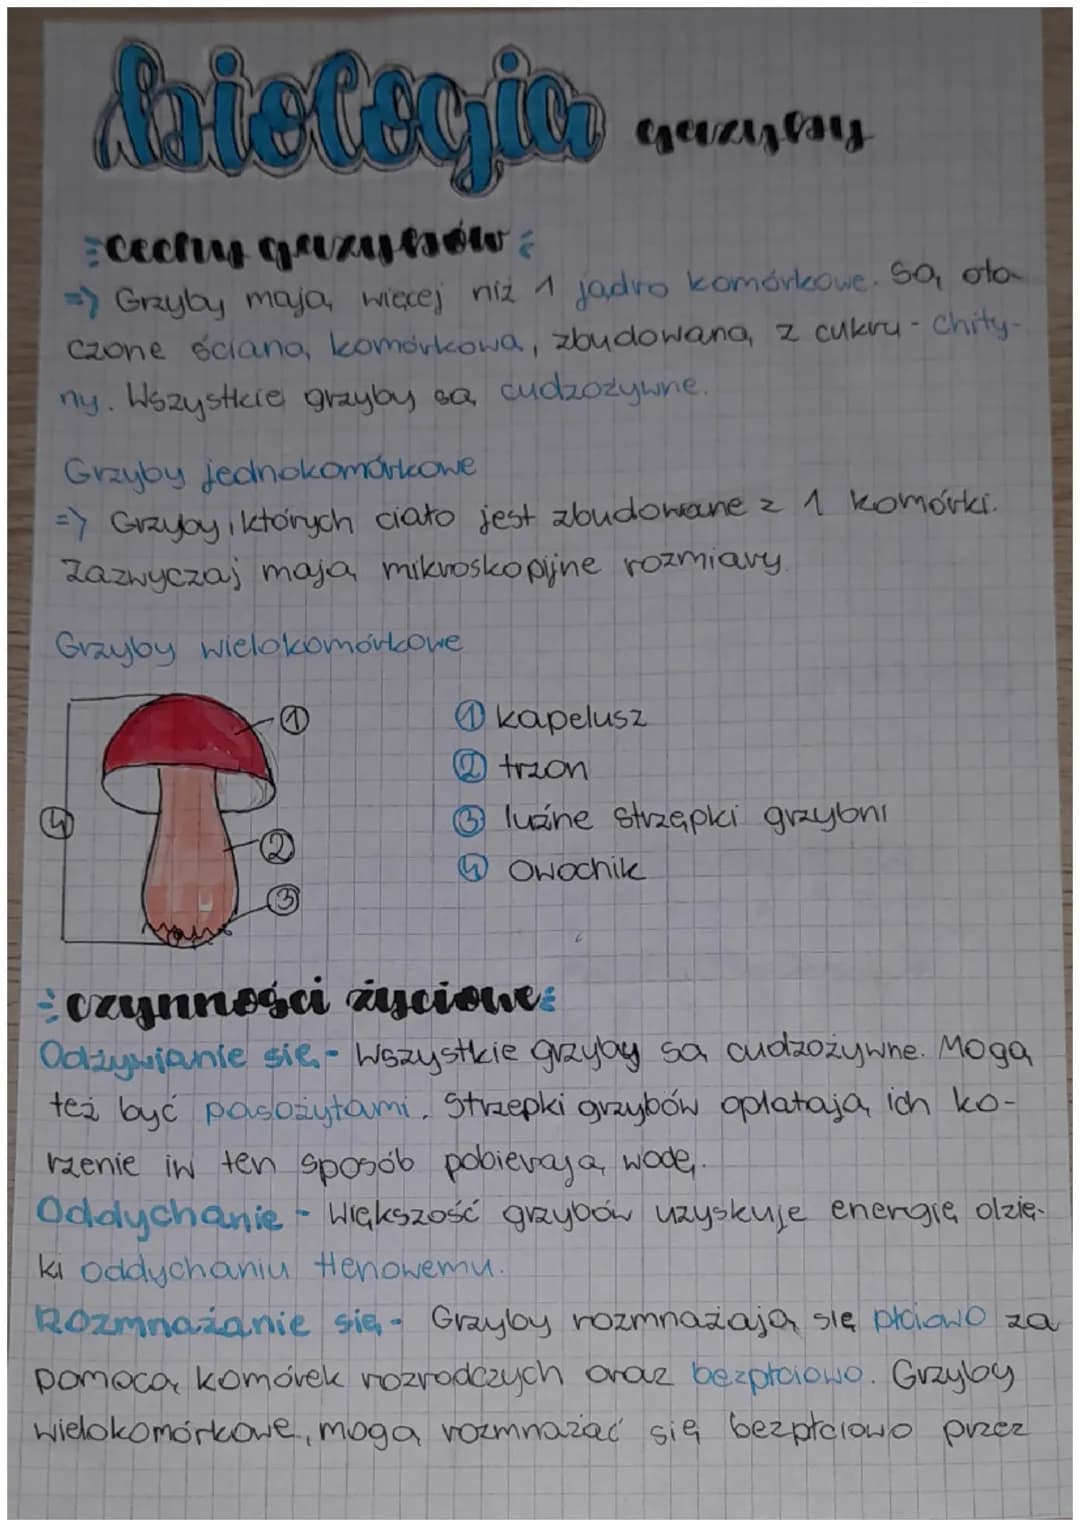 biologia grzyby
cechy grzybów
=> Grzyby mają więcej niż 1 jądro komórkowe. Są oto-
czone ścianą komórkową, zbudowaną z cukru - chity-
ny. Wszystkie grzyby są cudzożywne.
Grzyby jednokomórkowe
=> Grzyby, których ciało jest zbudowane z 1 komórki.
Zazwyczaj mają mikroskopijne rozmiary.
Grzyby wielokomórkowe
① ① kapelusz
② trzon
④ ③ luźne strzępki grzybni
② ④ owocnik
③
czynności życiowe
Odżywianie się - Wszystkie grzyby są cudzożywne. Mogą
też być pasożytami. Strzępki grzybów oplatają ich ko-
rzenie i w ten sposób pobierają wodę.
Oddychanie - Większość grzybów uzyskuje energię dzię-
ki oddychaniu tlenowemu.
Rozmnażanie się - Grzyby rozmnażają się płciowo za
pomocą komórek rozrodczych oraz bezpłciowo. Grzyby
wielokomórkowe, mogą rozmnażać się bezpłciowo przez